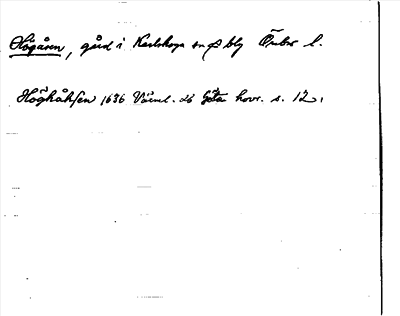 Högåsen, gård i Karlskoga sn o bg Örebro l.
Höghåhsen 1636 Värml. 26 Göta hovr. s. 12.